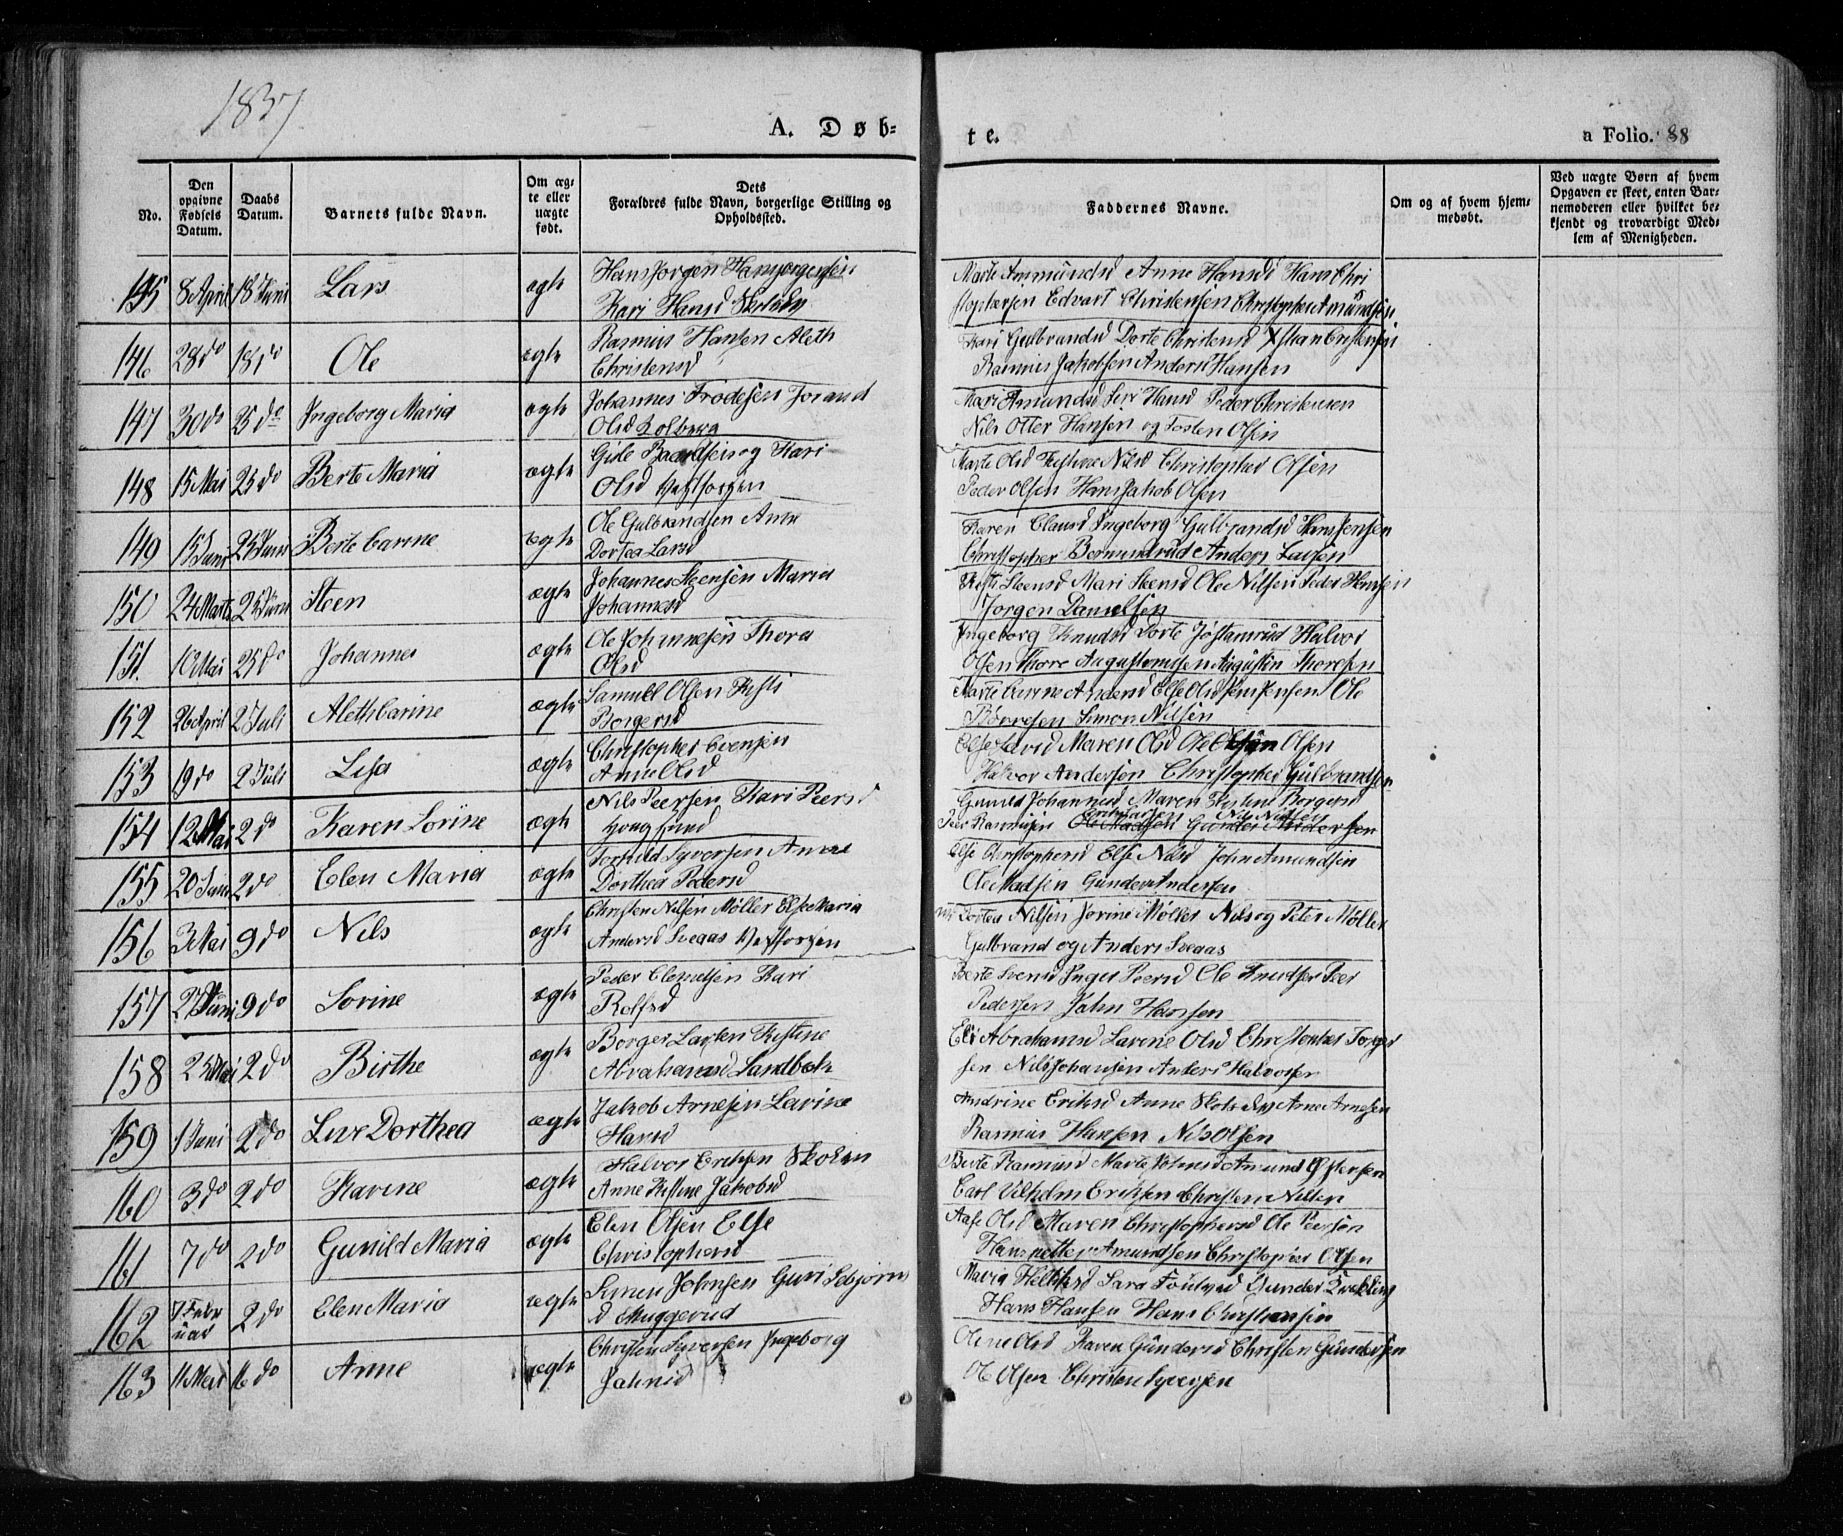 1837
A. Døb-
te.
a Folio. 88
No.
Den opgivne Fødsels Datum.
Daabs Datum.
Barnets fulde Navn.
Om ægte eller uægte født.
Dets Forældres fulde Navn, borgerlige Stilling og Opholdssted.
Faddernes Navne.
Om og af hvem hjemmedøbt.
Ved uægte Børn af hvem Opgaven er skeet, enten Barnemoderen eller hvilket bekjendt og troværdigt Medlem af Menigheden.
145 8 April 18 Juni Lars ægte Hans Jorgen Hansjorgensen
Kari Hansd
Marte Ammundsd Anne Hansd Hans Chri
stophersen Edvart Christensen Christopher Amundsen
146 28 do 18 do Ole ægte Rasmus Hansen Aleth
Christensd
Kari Gulbrandsd Dorte Christensd
Rasmus Jakobsen Anders Hansen
147 30 do 25 do Ingeborg Maria ægte Johannes Frodesen Jorand
Olsd Solberg
Mari Amundsd Siri Hansd Peder Christensen
Nils Otter Hansen og Tosten Olsen
148 15 Mai 25 do Berte Maria ægte Kari
Olsd Vestfossen
Marte Olsd Kistine Nilsd Christopher Olsen
Peder Olsen Hans Jakob Olsen
149 15 Juni 25 Juni Berte Carine ægte Ole Gulbrandsen Anne
Dortea Larsd
Karen Clausd Ingeborg Gulbrandsd Hans Jensen
Christopher Bermundrud Anders Larsen
150 24 Marts 25 Juni Steen ægte Johannes Steensen Maria
Johannesd
Kisti Steensd Mari Steensd Ole Nilsen Peder Hansen
Jorgen Danielsen
151. 10 Mai 25 do Johannes ægte Ole Johannesen Thora
Olsd
Ingeborg Knudsd Dorte Jostamrud Halvor
Olsen Thore Augustinussen Augustin Thoresen
152 26 April 2 Juli Aleth Carine ægte Samuel Olsen Kisti
Borgersd
Marte Carine Andersd Else Olsd Jens Jensen Ole
Borresen Simon Nilsen
153 19 do 2 Juli Lisa ægte Christopher Evensen
Anne Olsd
Else Larsd Maren Olsd Ole Olsen
Halvor Andersen Christopher Gulbrandsen
154 12 Mai 2 do Karen Lorine ægte Nils Peersen Kari Peersd
Hougsund
Gunild Johannesd Maren Kistine Borgersd
Peer Rasmusen Ole Madsen Gunder Andersen
155 20 Juni 2 do Elen Maria ægte Torkild Syversen Anne
Dorthea Pedersd
Else Christophersd Else Nilsd John Amundsen
Ole Madsen Gunder Andersen
156 3 Mai 9 do Nils ægte Christen Nilsen Møller Else Maria
Andersd Svegaas Vestfossen
Dortea Nilsen Jorine Møller Nils og Peter Møller
Gulbrand og Anders Svegaas
157 27 Juni 9 do Lorine ægte Peder Clemetsen Kari
Rolfsd
Berte Svensd Inger Peersd Ole Knudsen Peer
Pedersen John Hansen
158 25 Mai 2 do Birthe ægte Borger Larsen Kistine
Abrahamsd Sandbæk
Eli Abrahamsd Larene Olsd Christopher Torger
sen Nils Johansen Anders Halvorsen
159 1 Juni 2 do Live Dorthea ægte Jakob Arnesen Lavine
Hansd
Andrine Eriksd Anne Arne Arnesen
Rasmus Hansen Nils Olsen
160 3 do 2 do Karine ægte Halvor Eriksen Skolen
Anne Kistine Jakobsd
Berte Rasmusd Marte Amund Ostersen
Carl Vilhelm Eriksen Christen Nilsen
161 7 do 2 do Gunild Maria ægte Elen Olsen Else
Christophersd
Aase Olsd Maren Christophersd Ole Peersen
Amundsen Christopher Olsen
162 7 Febr
uar 2 do Elen Maria ægte Simen Johnsen Guri Sebjorns
d Muggerud
Maria Sara Gunder
Hans Hansen Hans Christiansen
163 11 Mai 16 do Anne ægte Christen Syversen Ingeborg
Johnsd
Olene Olsd Karen Gundersd Christen Gundersen
Ole Olsen Christen Syversen